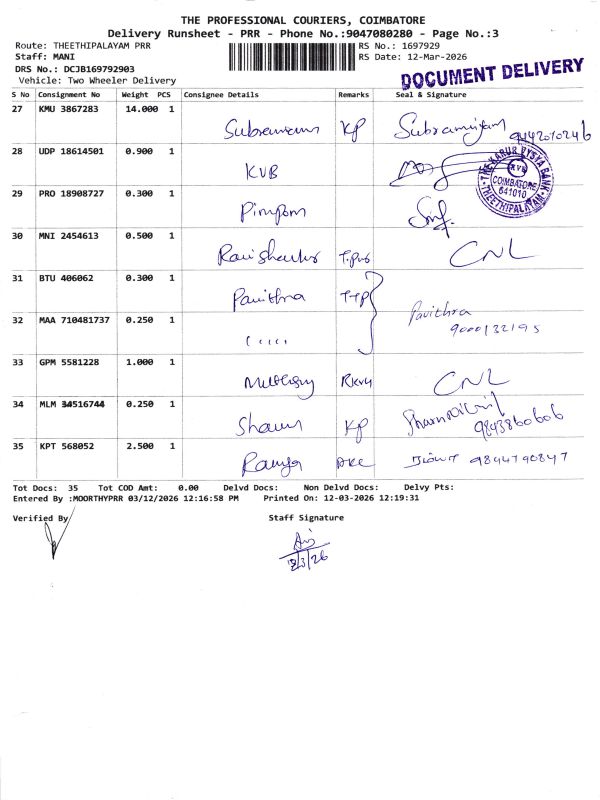 THE PROFESSIONAL COURIERS, COIMBATORE
Delivery Runsheet - PRR - Phone No.:9047080280 - Page No.:3
Route: THEETHIPALAYAM PRR RS No.: 1697929
Staff: MANI RS Date: 12-Mar-2026
DRS No.: DCJB169792903
Vehicle: Two Wheeler Delivery
DOCUMENT DELIVERY
S No Consignment No Weight PCS Consignee Details Remarks Seal & Signature
27 KMU 3867283 14.000 1 KP
28 UDP 18614501 0.900 1 KVB
THE KARUR VYSYA BANK
KVB
COIMBATORE
641010
THEETHIPALAYAM
29 PRO 18908727 0.300 1
30 MNI 2454613 0.500 1 CNL
31 BTU 406062 0.300 1 Pavithra TTP Pavithra
32 MAA 710481737 0.250 1 9000132195
33 GPM 5581228 1.000 1 CNL
34 MLM 34516744 0.250 1 KP 9843860606
35 KPT 568052 2.500 1 Ramya 9844790847
Tot Docs: 35 Tot COD Amt: 0.00 Delvd Docs: Non Delvd Docs: Delvy Pts:
Entered By :MOORTHYPRR 03/12/2026 12:16:58 PM Printed On: 12-03-2026 12:19:31
Verified By Staff Signature
12/3/26